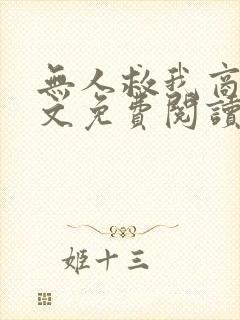 無人救我高
文免費閱讀
姬十三